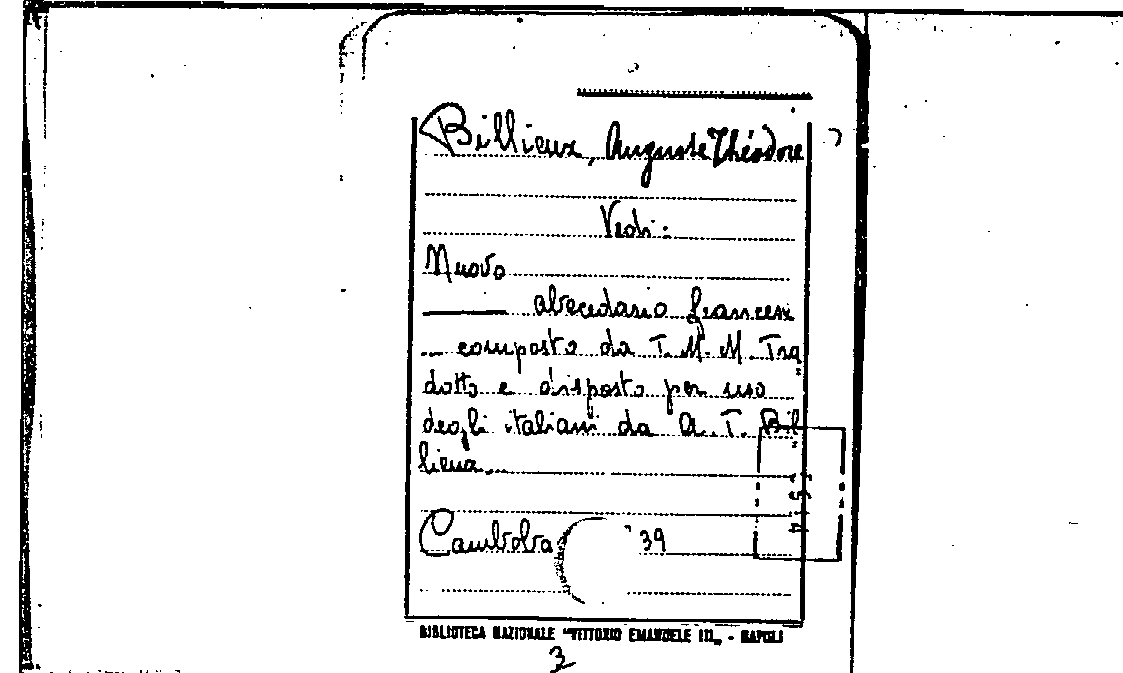 Billieux, Auguste Théodore
Vedi:
Nuovo
abecedario francese
composto da T. M. M. Tra
dotto e disposto per uso
degli italiani da A. T. Bil
lieux
39
BIBLIOTECA NAZIONALE "VITTORIO EMANUELE III„ - NAPOLI
3